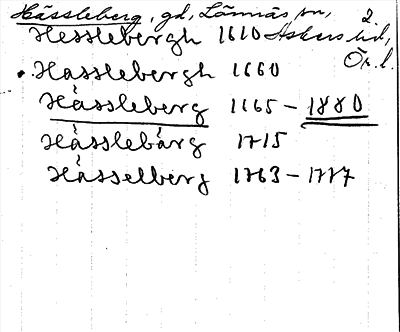 Hässleberg, gd, Lännäs sn, 2.
Hesslebergh 1610 Askers hd,
Ör. l.
Hasslebergh 1660
Hässleberg 1665 – 1880
Hässlebärg 1715
Hässelberg 1763 – 1777